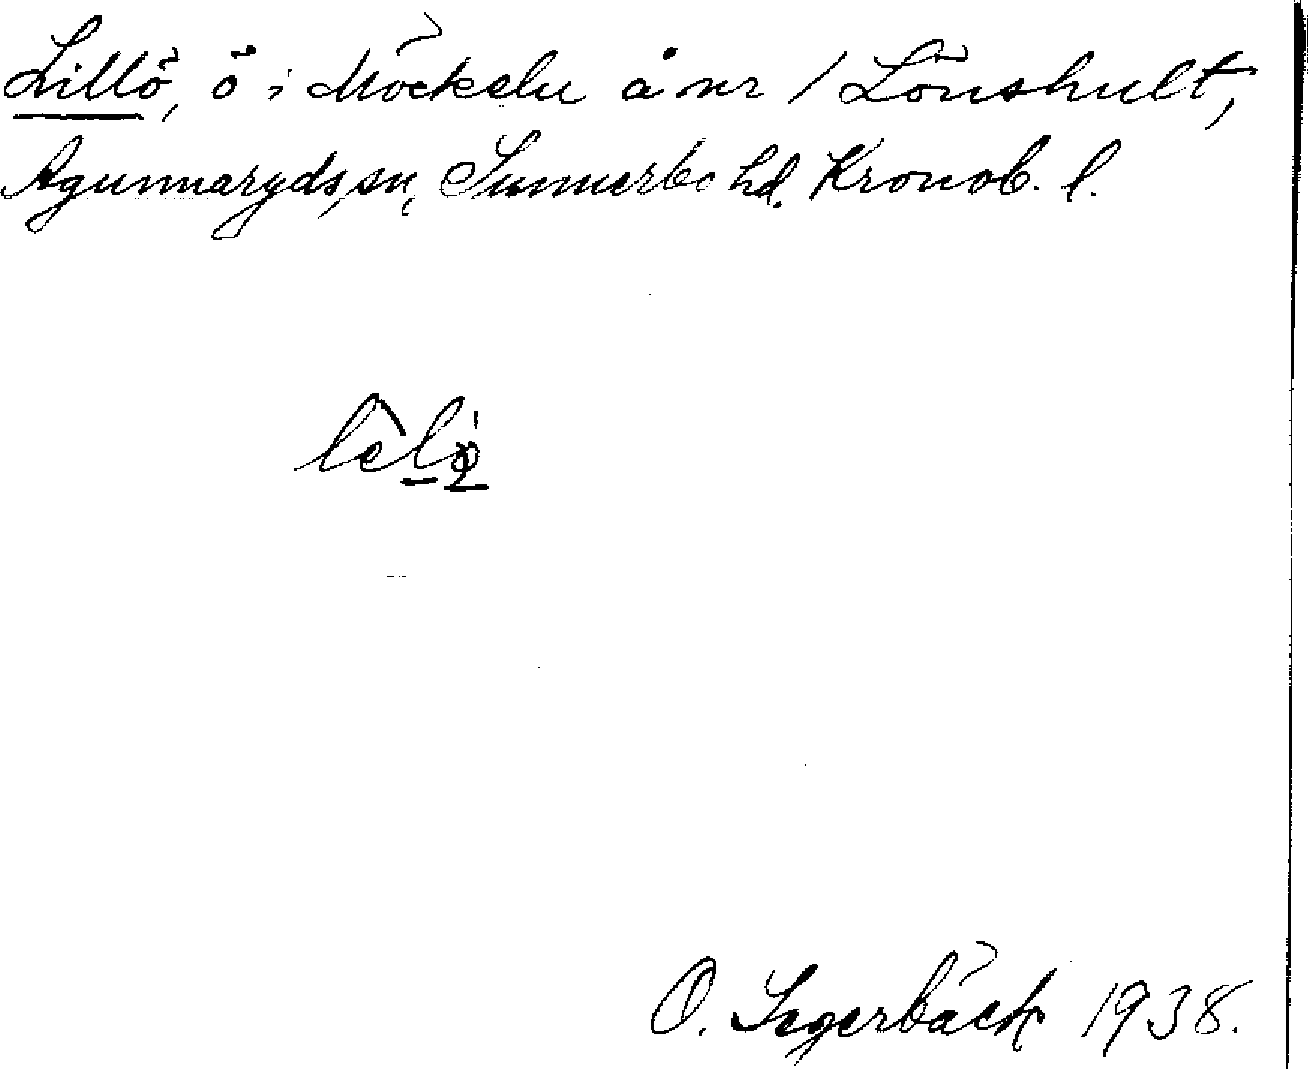 Lillö, ö i Möckeln å nr 1 Lönshult,
Agunnaryds sn, Sunnerbo hd. Kronob. l.
O. Segerbäck 1938.